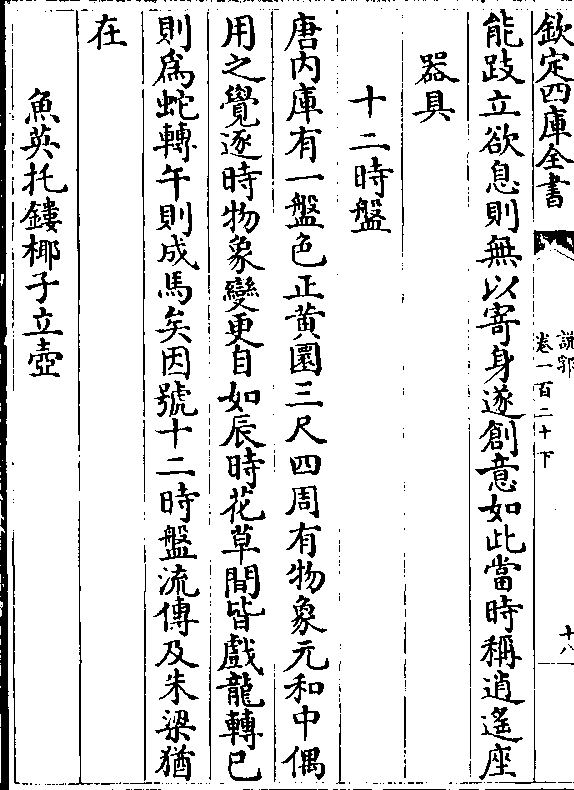 欽定四庫全書
說郛
卷一百二十下
十八
能跂立欲息則無以寄身遂創意如此當時稱逍遙座
器具
十二時盤
唐内庫有一盤色正黄圜三尺四周有物象元和中偶
用之覺逐時物象變更自如辰時花草間皆戲龍轉已
則為蛇轉午則成馬矣因號十二時盤流傳及朱梁猶
在
魚英托鏤椰子立壺